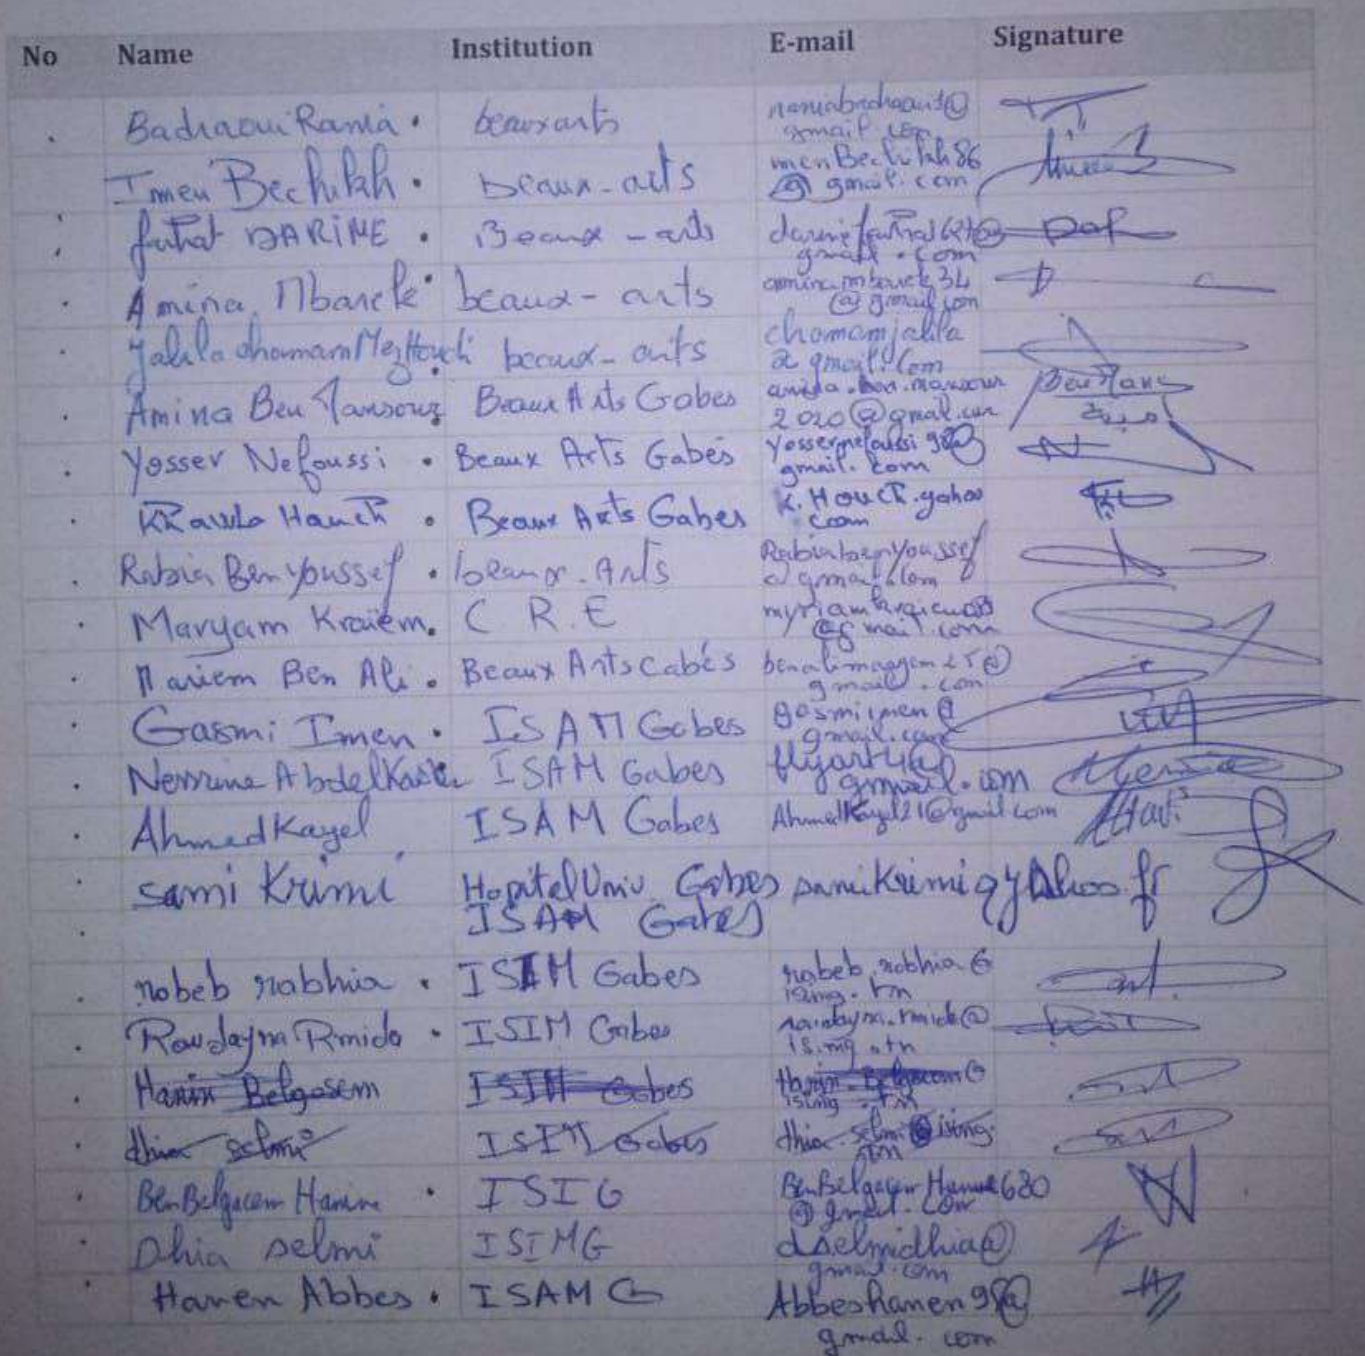 No Name Institution E-mail Signature
Badraoui Rania. beauxarts
gmail.com
Imen Bechikh. beaux-arts menBechikh86
@gmail.com
farhat DARINE. Beaux-arts
gmail.com
Amina Mbarek beaux-arts aminambarek
@gmail.com
Jalila chomam beaux-arts chomamjalila
@gmail.com
Amina Ben Mansour Beaux Arts Gabes amina.ben.mansour
2020@gmail.com
Yosser Nefoussi. Beaux Arts Gabés Yossernefoussi98@
gmail.com
Khawla Hauch. Beaux Arts Gabes K.Houch.yahoo
.com
Rabia Ben youssef. beaux.Arts Rabiabenyoussef
@gmail.com
Maryam Kraïem. C R E
@gmail.com
Mariem Ben Ali. Beaux Arts Gabés
gmail.com
Gasmi Imen. ISAM Gabes gasmiimen@
gmail.com
Nessrine ISAM Gabes flyart4@
gmail.com
Ahmed Kayel ISAM Gabes AhmedKayel21@gmail.com
sami Krimi Hopital Univ Gabes samiKrimi@yahoo.fr
ISAM Gabes
nobeb rabhia. ISIM Gabes
isimg.tn
Raudayna Rmida. ISIM Gabes raudayna.rmida@
isimg.tn
Hanin Belgasem ISIM Gabes Hanin.Belgacem@
isimg.tn
dhia selmi ISIM Gabes dhia.selmi@isimg.
tn
Ben Belgacem Hanine. ISIG
@gmail.com
Dhia selmi ISIMG dselmidhia@
gmail.com
Hanen Abbes. ISAM G Abbeshanen98@
gmail.com